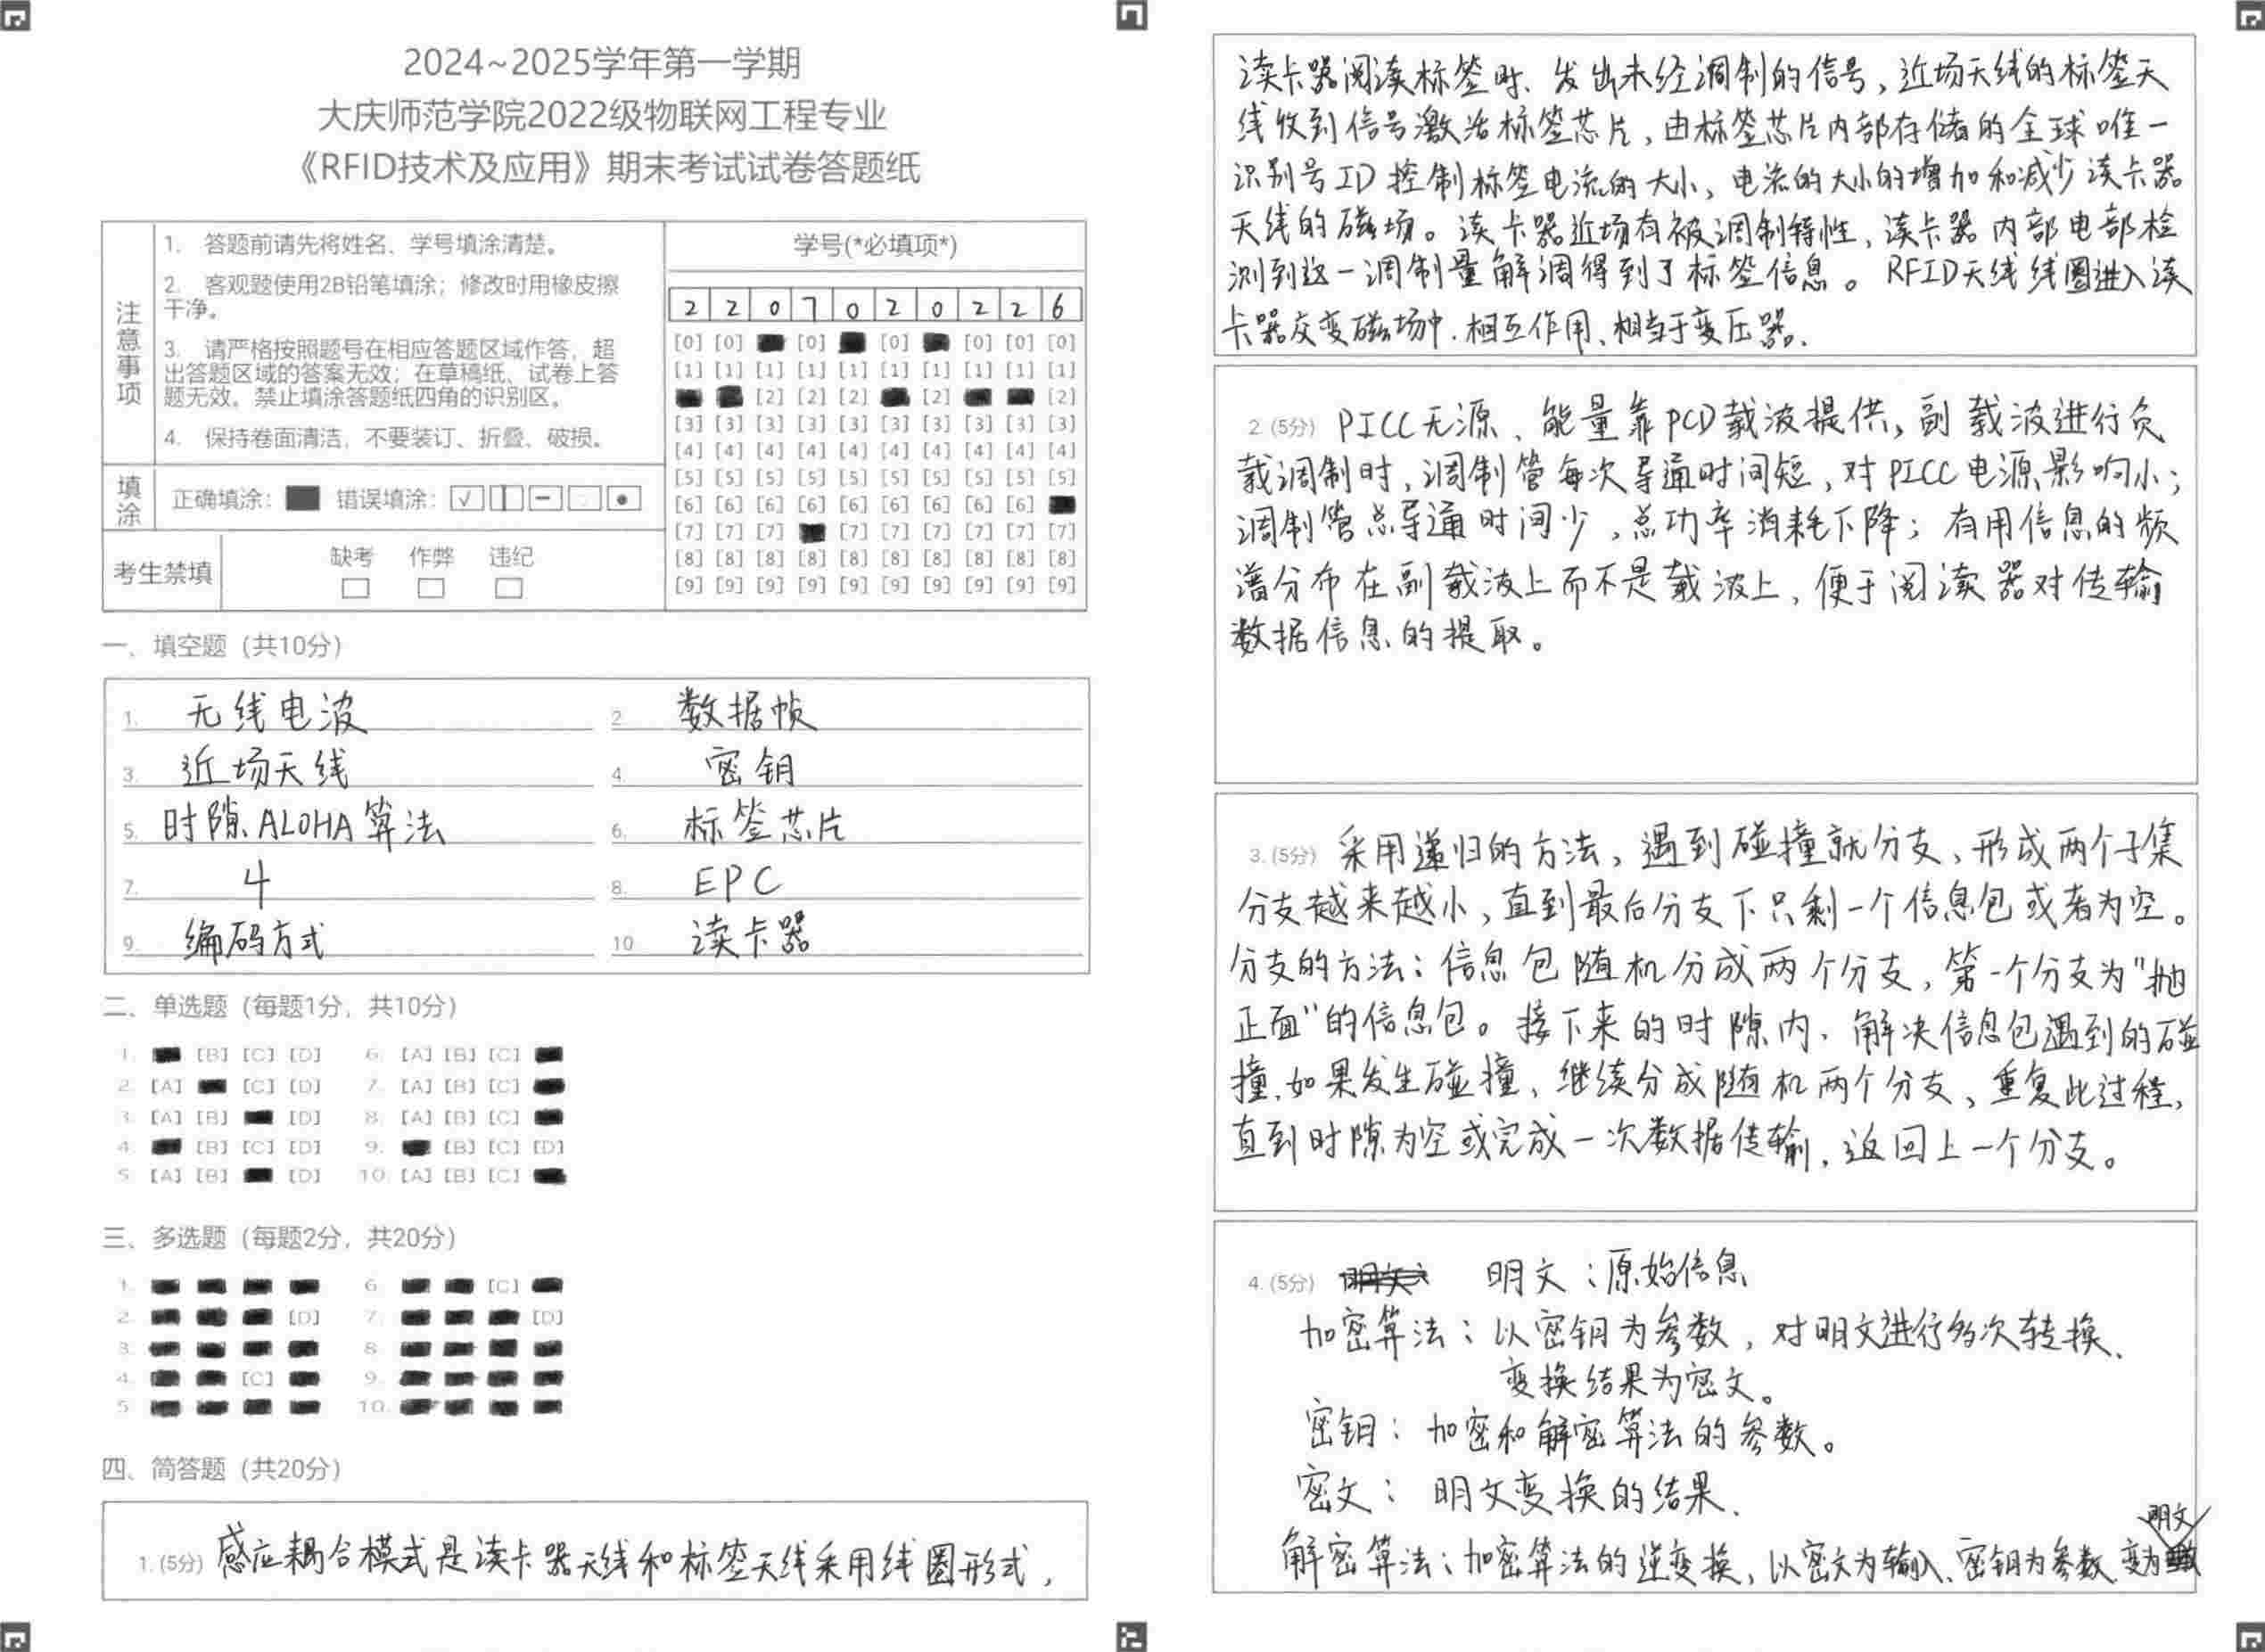 2024~2025学年第一学期
大庆师范学院2022级物联网工程专业
《RFID技术及应用》期末考试试卷答题纸
注意事项
1. 答题前请先将姓名、学号填涂清楚。
2. 客观题使用2B铅笔填涂；修改时用橡皮擦
干净。
3. 请严格按照题号在相应答题区域作答，超
出答题区域的答案无效；在草稿纸、试卷上答
题无效。禁止填涂答题纸四角的识别区。
4. 保持卷面清洁，不要装订、折叠、破损。
填涂
正确填涂： 错误填涂：
考生禁填
缺考 作弊 违纪
学号(*必填项*)
2 2 0 7 0 2 0 2 2 6
[0] [0] [0] [0] [0] [0] [0]
[1] [1] [1] [1] [1] [1] [1] [1] [1] [1]
[2] [2] [2] [2] [2]
[3] [3] [3] [3] [3] [3] [3] [3] [3] [3]
[4] [4] [4] [4] [4] [4] [4] [4] [4] [4]
[5] [5] [5] [5] [5] [5] [5] [5] [5] [5]
[6] [6] [6] [6] [6] [6] [6] [6] [6]
[7] [7] [7] [7] [7] [7] [7] [7] [7]
[8] [8] [8] [8] [8] [8] [8] [8] [8] [8]
[9] [9] [9] [9] [9] [9] [9] [9] [9] [9]
一、填空题（共10分）
1. 无线电波 2. 数据帧
3. 近场天线 4. 密钥
5. 时隙ALOHA算法 6. 标签芯片
7. 4 8. EPC
9. 编码方式 10 读卡器
二、单选题（每题1分，共10分）
1. [B] [C] [D] 6. [A] [B] [C]
2. [A] [C] [D] 7. [A] [B] [C]
3. [A] [B] [D] 8. [A] [B] [C]
4. [B] [C] [D] 9. [B] [C] [D]
5. [A] [B] [D] 10. [A] [B] [C]
三、多选题（每题2分，共20分）
1. 6. [C]
2. [D] 7. [D]
3. 8.
4. [C] 9.
5. 10.
四、简答题（共20分）
1. (5分) 感应耦合模式是读卡器天线和标签天线采用线圈形式，
读卡器阅读标签时、发出未经调制的信号，近场天线的标签天
线收到信号激活标签芯片，由标签芯片内部存储的全球唯一
识别号ID控制标签电流的大小，电流的大小的增加和减少读卡器
天线的磁场。读卡器近场有被调制特性，读卡器内部电部检
测到这一调制量解调得到了标签信息。RFID天线线圈进入读
卡器交变磁场中.相互作用、相当于变压器.
2. (5分) PICC无源、能量靠PCD载波提供，副载波进行负
载调制时，调制管每次导通时间短，对PICC电源影响小；
调制管总导通时间少，总功率消耗下降；有用信息的频
谱分布在副载波上而不是载波上，便于阅读器对传输
数据信息的提取。
3. (5分) 采用递归的方法，遇到碰撞就分支，形成两个子集
分支越来越小，直到最后分支下只剩一个信息包或者为空。
分支的方法：信息包随机分成两个分支，第一个分支为"抛
正面"的信息包。接下来的时隙内、解决信息包遇到的碰
撞.如果发生碰撞，继续分成随机两个分支、重复此过程，
直到时隙为空或完成一次数据传输，返回上一个分支。
4. (5分) 明文：原始信息
加密算法：以密钥为参数，对明文进行多次转换、
变换结果为密文。
密钥：加密和解密算法的参数。
密文：明文变换的结果、
明文
解密算法：加密算法的逆变换，以密文为输入、密钥为参数.变为